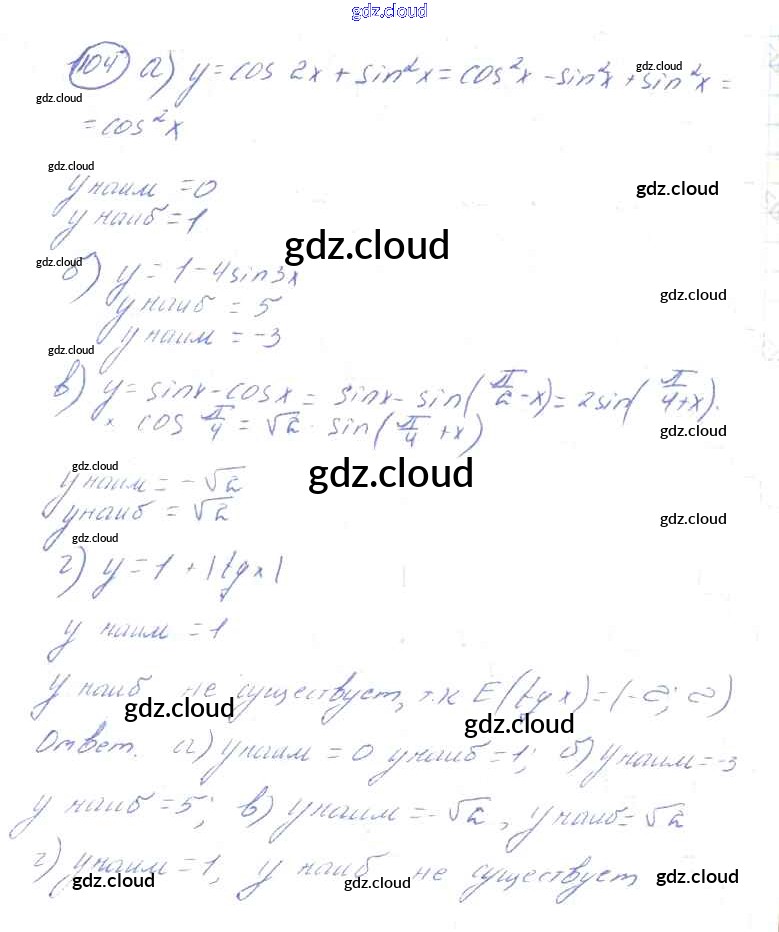 gdz.cloud
104 а) y = cos 2x + sin²x = cos²x - sin²x + sin²x = gdz.cloud
gdz.cloud
= cos²x
gdz.cloud
y наим = 0 gdz.cloud
y наиб = 1
gdz.cloud
gdz.cloud
б) y = 1 - 4sin3x
gdz.cloud
y наиб = 5
y наим = -3
gdz.cloud
в) y = sinx - cosx = sinx - sin(π/2 - x) = 2sin(π/4 + x).
× cos π/4 = √2 · sin(π/4 + x) gdz.cloud
gdz.cloud
gdz.cloud
y наим = -√2
y наиб = √2 gdz.cloud
gdz.cloud
г) y = 1 + |tgx|
y наим = 1
y наиб не существует, т.к E(tgx) = (-∞; ∞)
gdz.cloud gdz.cloud
Ответ. а) y наим = 0 y наиб = 1; б) y наим = -3
y наиб = 5; в) y наим = -√2, y наиб = √2
г) y наим = 1, y наиб не существует
gdz.cloud gdz.cloud gdz.cloud